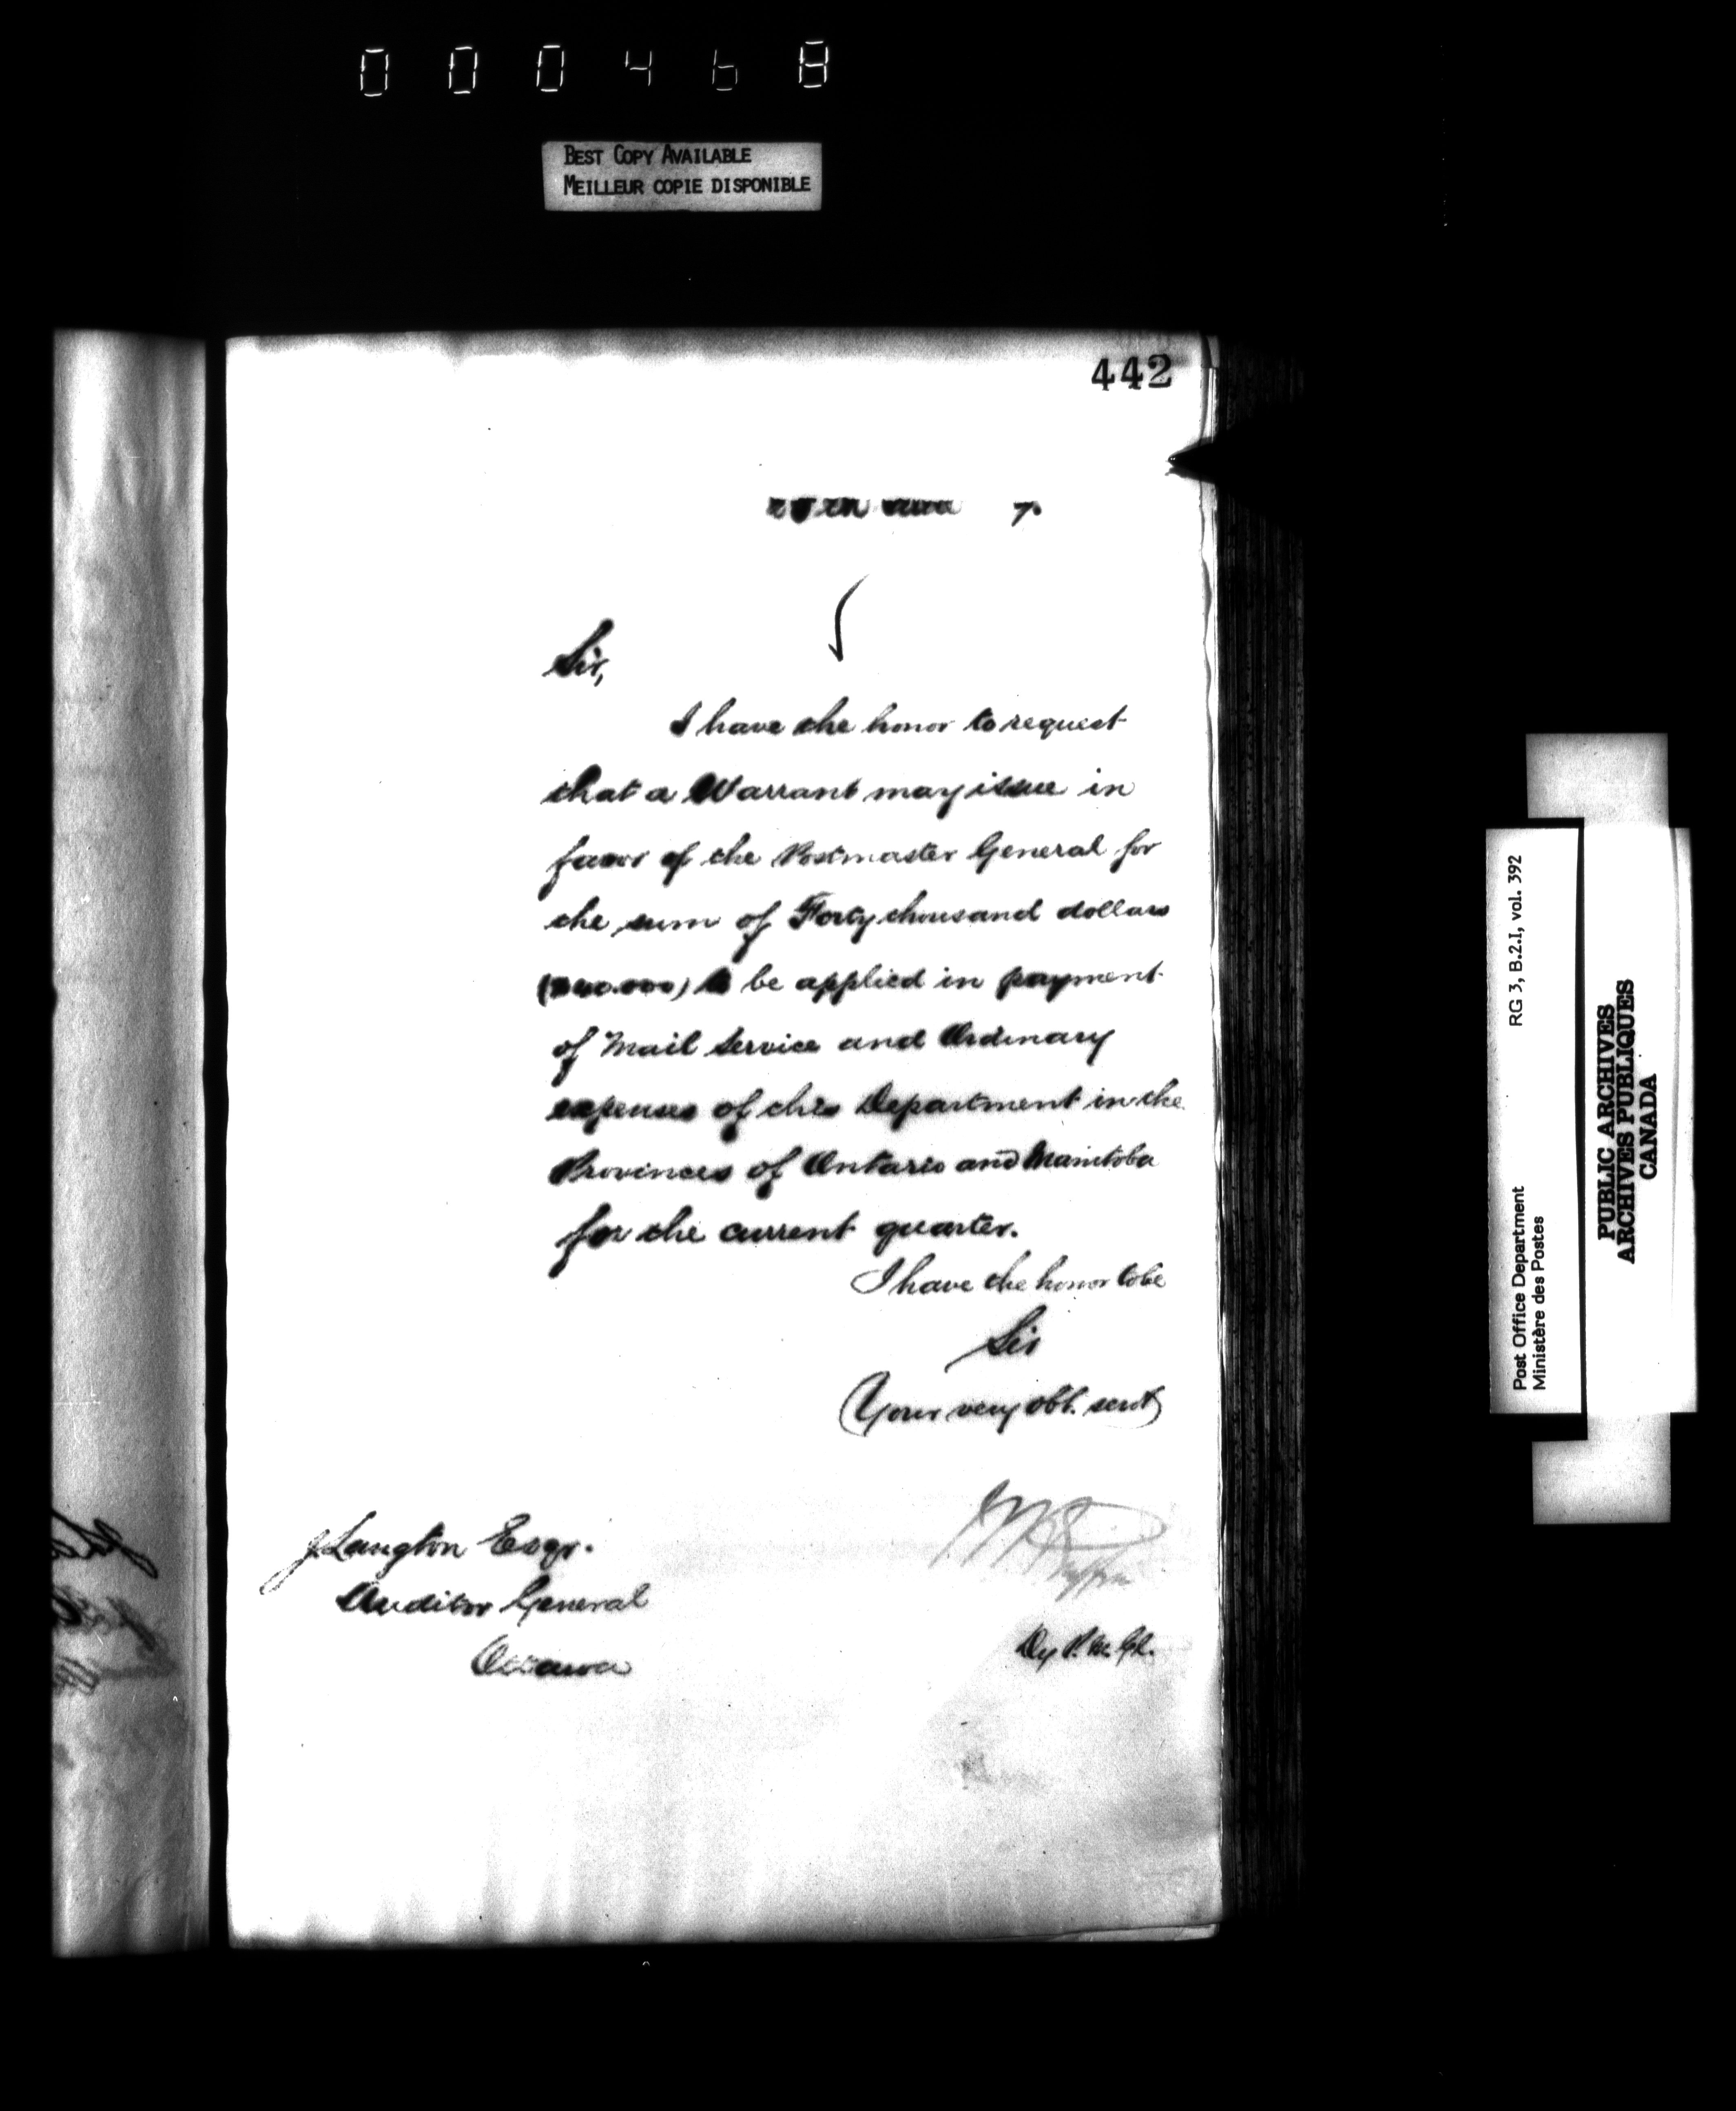 000468
BEST COPY AVAILABLE
MEILLEUR COPIE DISPONIBLE
442
7.
Sir,
I have the honor to request
that a Warrant may issue in
favor of the Postmaster General for
the sum of Forty thousand dollars
($40.000) to be applied in payment
of Mail Service and Ordinary
expenses of this Department in the
Provinces of Ontario and Manitoba
for the current quarter.
I have the honor to be
Sir
Your very obt. servt
J. Langton Esqr.
Auditor General
Ottawa
Dy P. M. Gl.
RG 3, B.2.I, vol. 392
Post Office Department
Ministère des Postes
PUBLIC ARCHIVES
ARCHIVES PUBLIQUES
CANADA